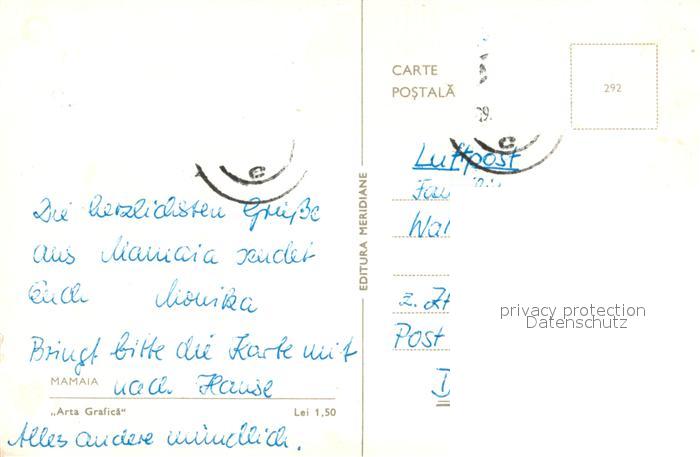 Die herzlichsten Grüße
aus Mamaia sendet
Euch Monika
Bringt bitte die Karte mit
nach Hause
Alles andere mündlich.
MAMAIA
„Arta Grafică“ Lei 1,50
EDITURA MERIDIANE
CARTE
POȘTALĂ
292
29.
C
C
Luftpost
Fam
Wal
z. Zt
Post
D
privacy protection
Datenschutz